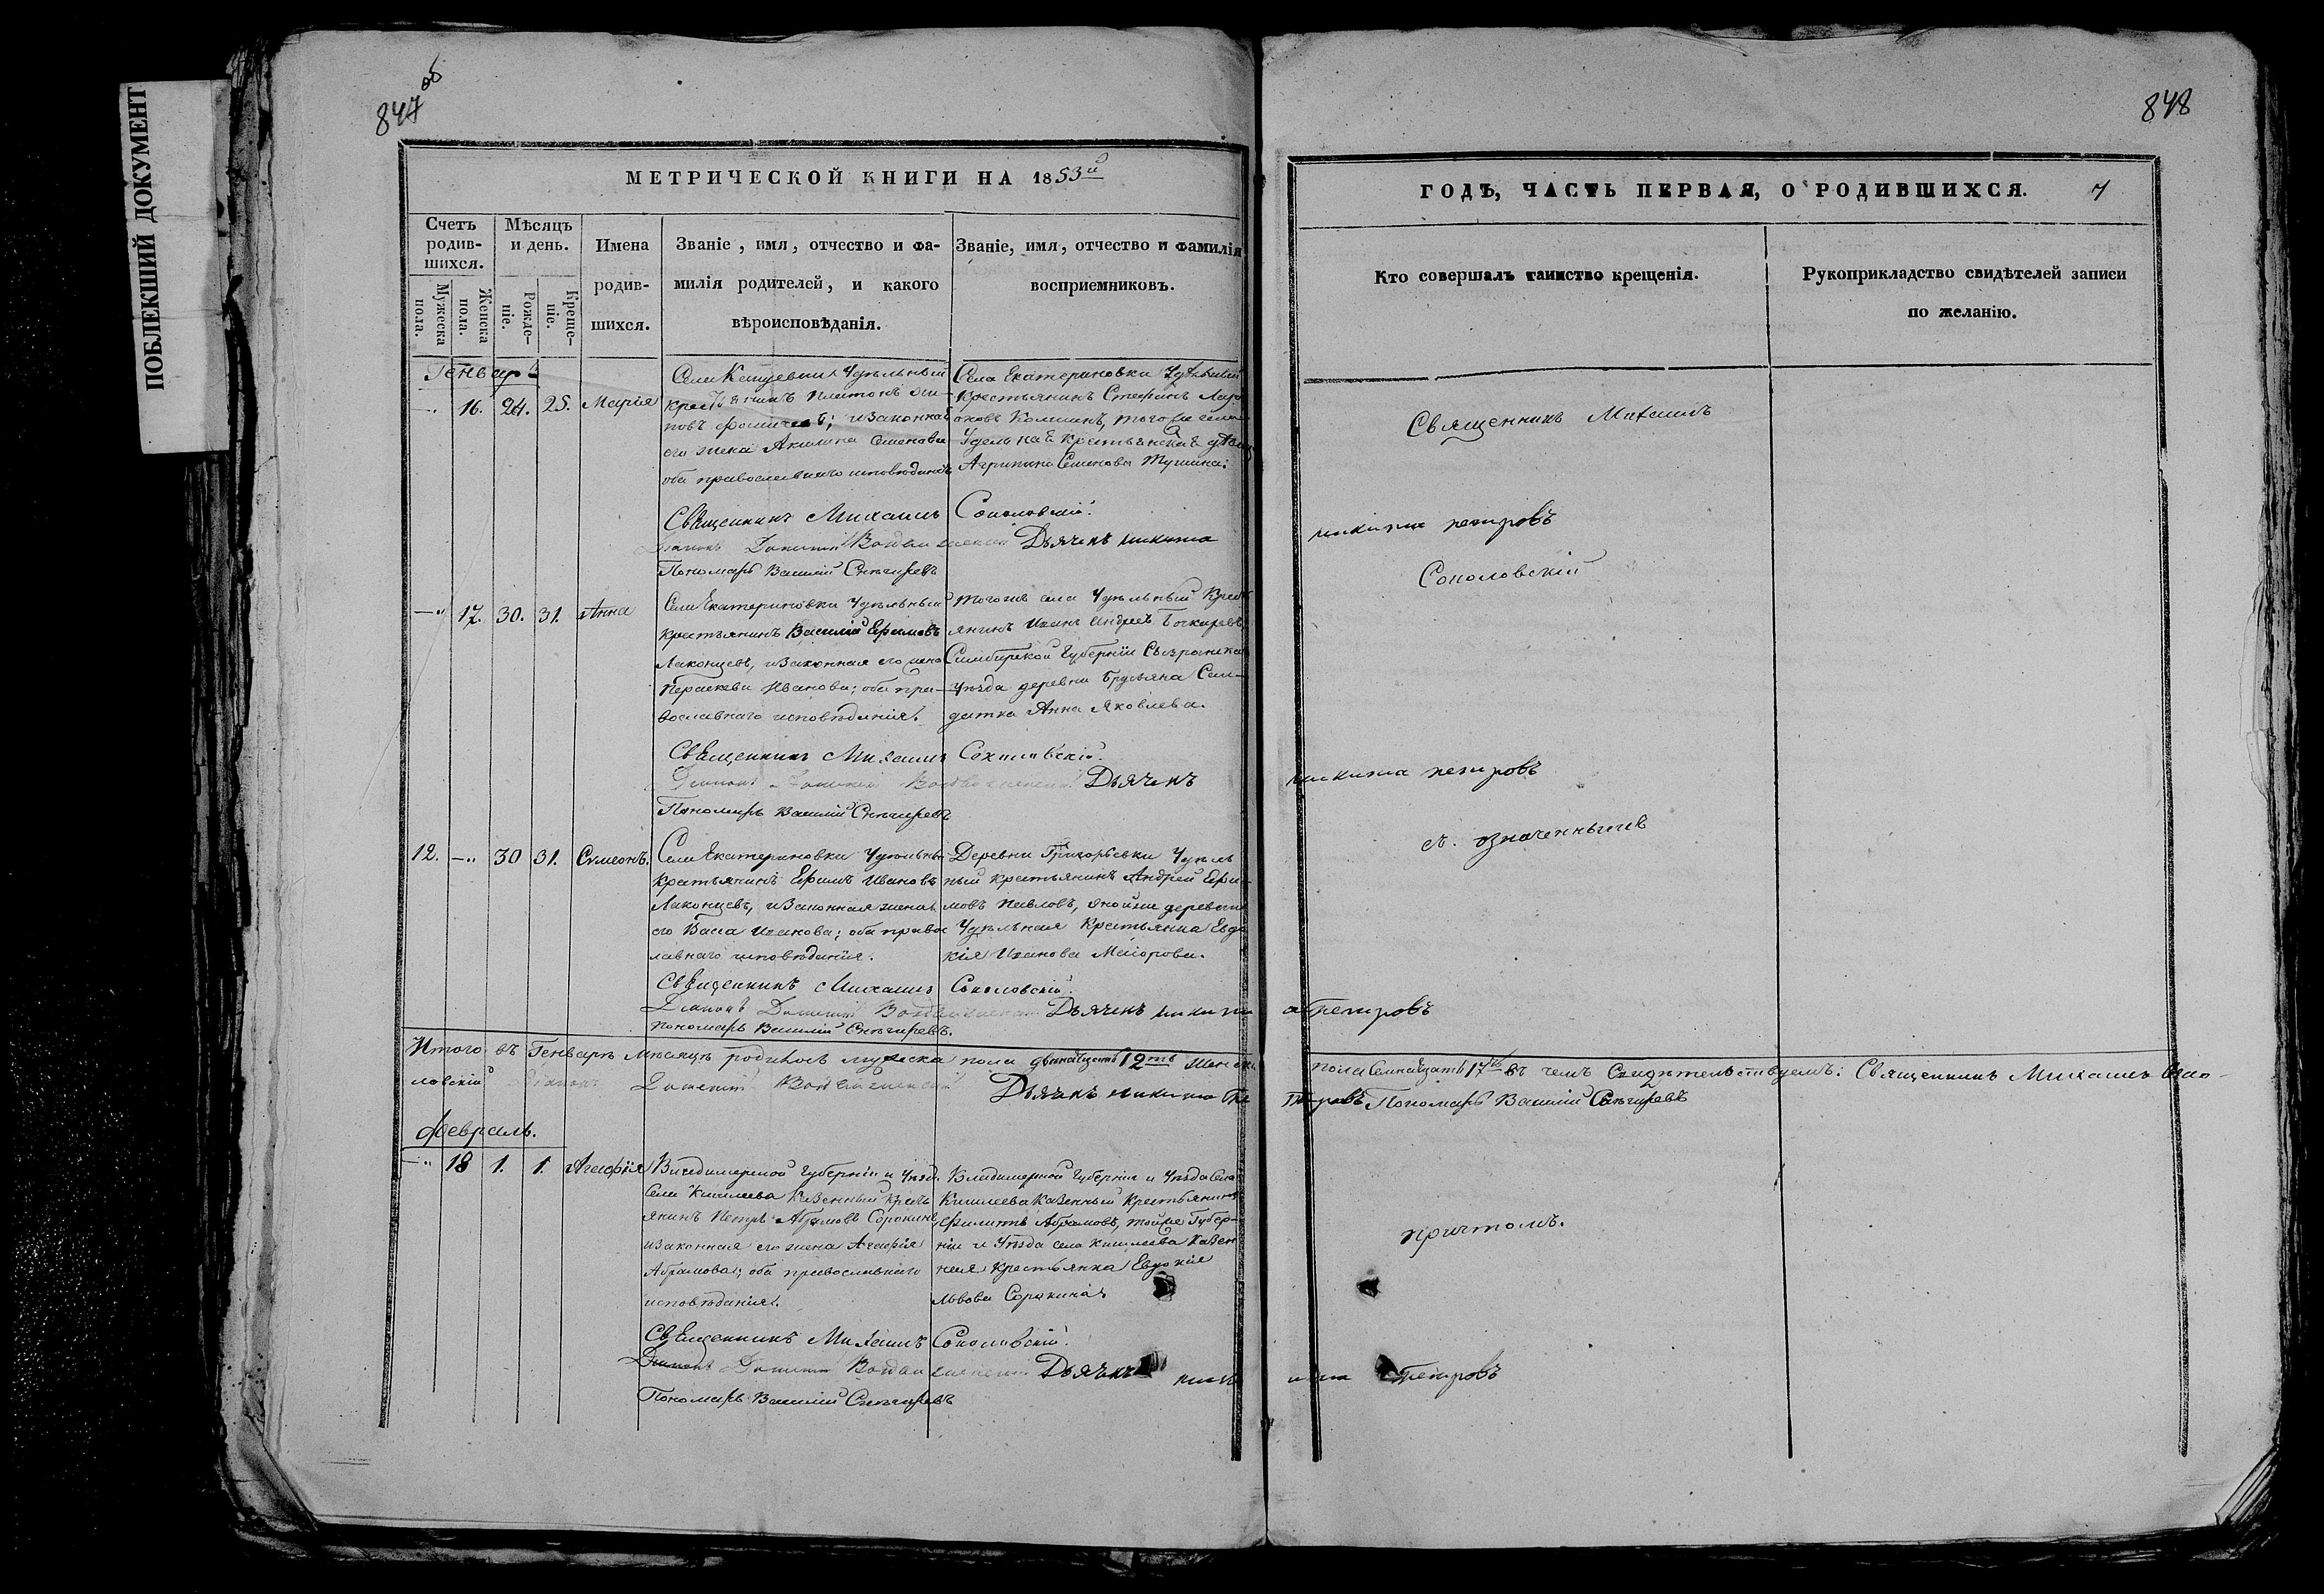 ПОБЛЕКШИЙ ДОКУМЕНТ
847 об
848
МЕТРИЧЕСКОЙ КНИГИ НА 1853й
ГОДЪ, ЧАСТЬ ПЕРВАЯ, О РОДИВШИХСЯ. 7
Счетъ родив-шихся.
Мужеска пола.
Женска пола.
Мѣсяцъ и день.
Рожде-ніе.
Креще-ніе.
Имена
родив-
шихся.
Званіе, имя, отчество и фа-
милія родителей, и какого
вѣроисповѣданія.
Званіе, имя, отчество и фамилія
воспріемниковъ.
Кто совершалъ таинство крещенія.
Рукоприкладство свидѣтелей записи
по желанію.
Генварь
16. 24. 25. Марія
Села Удѣльный
крестьянинъ Платонъ
законная
его жена Акилина Семенова
оба православнаго исповѣданія
Села Екатериновки Удѣльный
крестьянинъ Стефанъ
того же села
Удельная крестьянская дѣвица
Агрипина Семенова
Священникъ Михаилъ
Соколовскій
Священникъ Михаилъ Соколовскій.
Діаконъ Дьячекъ никита петровъ
Пономарь Василій Снѣгиревъ
17. 30. 31. Анна
Села Екатериновки Удѣльный
крестьянинъ Василій Ефимовъ
Лаконцевъ, изаконная его жена
Параскева Иванова; оба пра-
вославнаго исповѣданія.
Тогоже села Удѣльный Крест
янинъ Иванъ Андреевъ
Симбирской Губерніи Сызранска
Уѣзда деревни Брусяна Сал-
датка Анна Яковлева.
Священникъ Михаилъ Соколовскій.
Діаконъ Дьячекъ никита петровъ
Пономарь Василій Снѣгиревъ
12. 30 31. Сѵмеонъ.
Села Екатериновки Удѣльный
крестьянинъ Ефимъ Ивановъ
Лаконцевъ, изаконная жена
его Васса Иванова; оба правос
лавнаго исповѣданія.
Деревни Григорьевки Удѣль
ный крестьянинъ Андрей Ефи-
мовъ Павловъ, тойже деревни
Удѣльная Крестьянка Евдо
кія Иванова Маіорова.
съ означеннымъ
Священникъ Михаилъ Соколовскій.
Діаконъ Дьячекъ никита Петровъ
Пономарь Василій Снѣгиревъ.
Итого въ Генварѣ мѣсяцѣ родилось мужеска пола двенадцать 12ть женска пола Семнадцать 17ть въ чемъ Свидѣтельствуемъ: Священникъ Михаилъ Соко-
ловскій Діаконъ Дьячекъ никита Петровъ Пономарь Василій Снѣгиревъ
Февраль.
18 1. 1. Агафія
Владимерской Губерніи и Уѣзда
Села Кишлеева Казенный крест
янинъ Петръ Абрамовъ Сорокинъ,
изаконная его жена Агафія
Абрамова; оба православнаго
исповѣданія.
Владимерской Губерніи и Уѣзда Села
Кишлеева Казенный крестьянинъ
Филиппъ Абрамовъ, тойже Губер-
ніи и Уѣзда села Кишлеева Казен
ная крестьянка Евдокія
Львова Сорокина.
причтомъ.
Священникъ Михаилъ Соколовскій.
Діаконъ Дьячекъ никита Петровъ
Пономарь Василій Снѣгиревъ